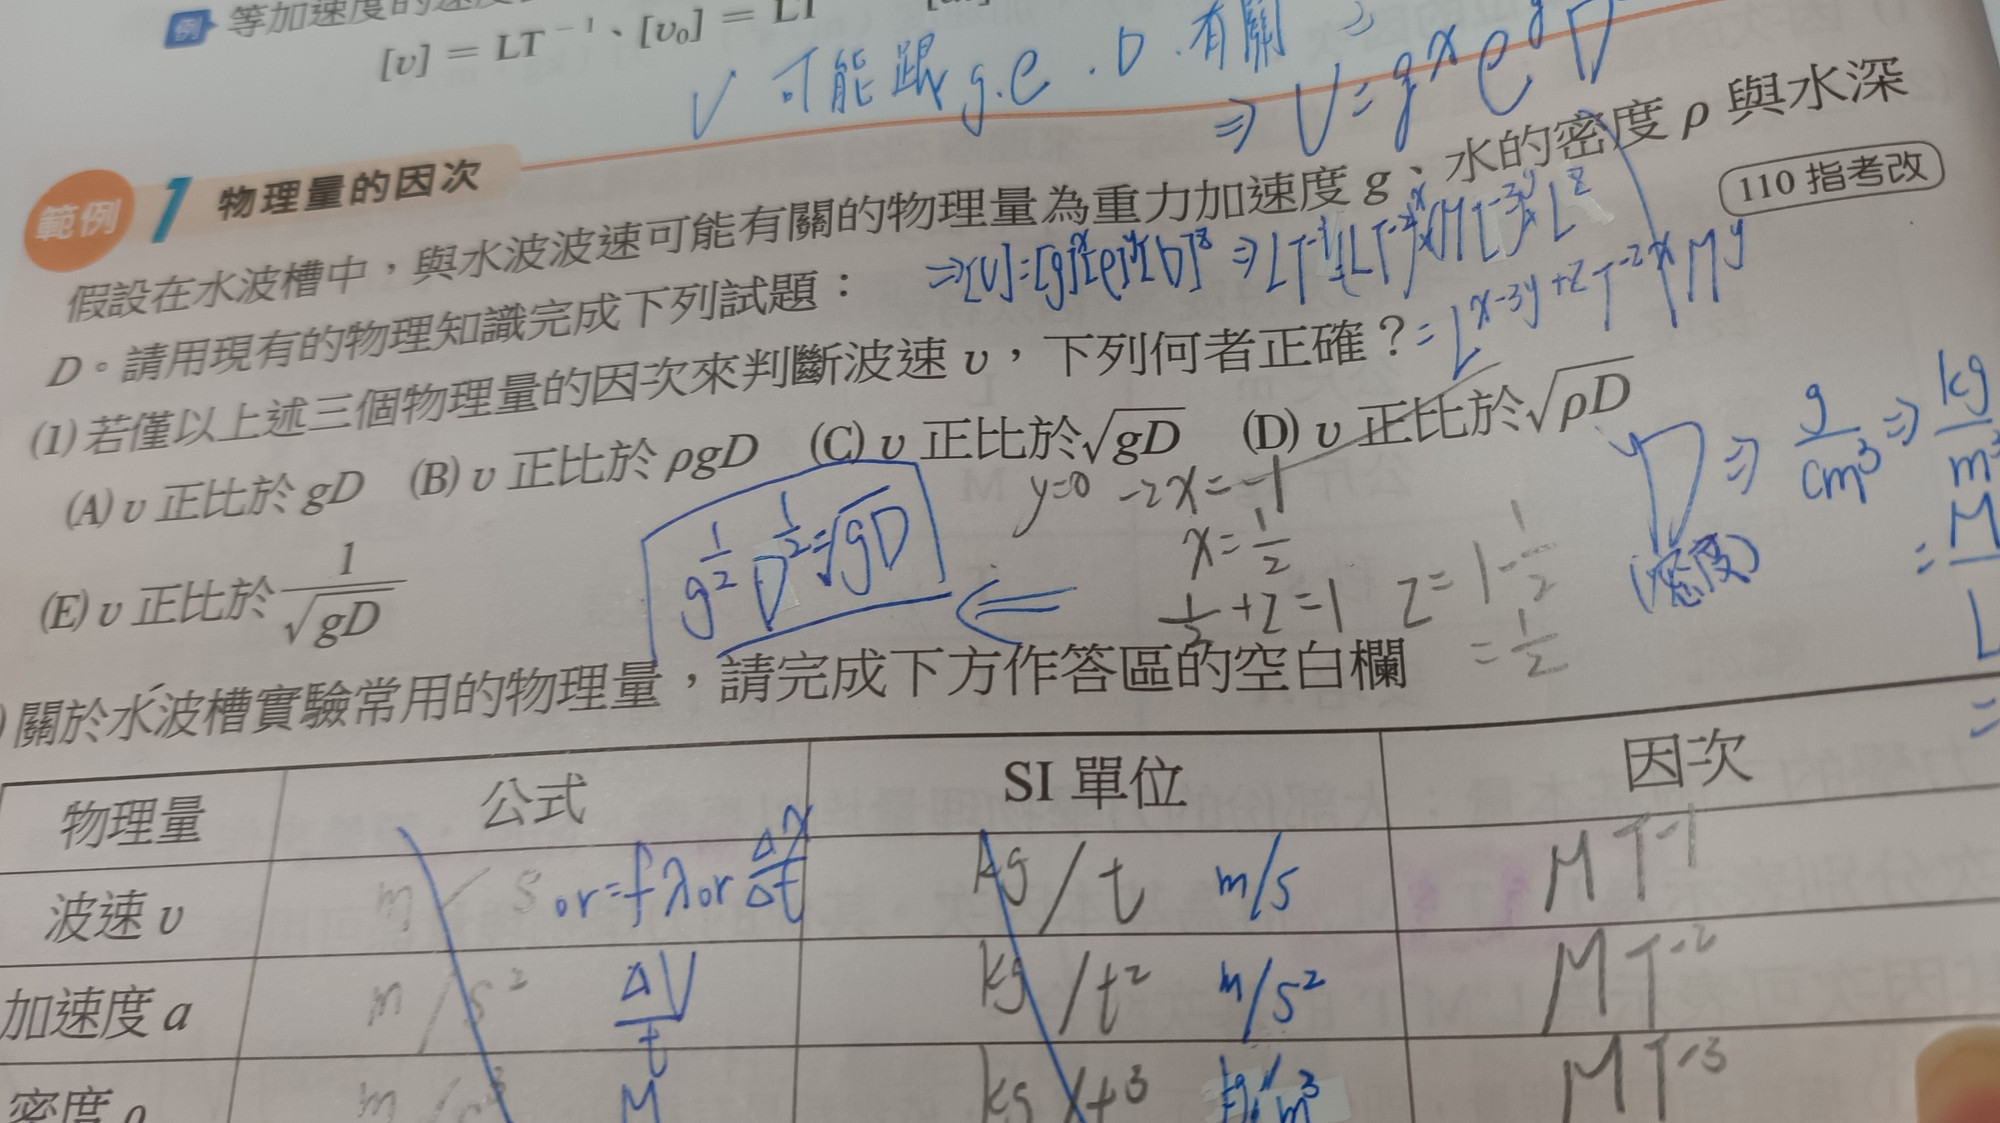 例 等加速度的速度
[v] = LT⁻¹、[v₀] = LT
✓ 可能跟 g.e . D .有關
⇒ V = gˣ e D
範例 1 物理量的因次
假設在水波槽中，與水波波速可能有關的物理量為重力加速度 g、水的密度 ρ 與水深
D。請用現有的物理知識完成下列試題：
110 指考改
⇒[V]=[g]ˣ[e]ʸ[D]ᶻ ⇒ LT⁻¹=(LT⁻²)ˣ(ML⁻³)ʸ×Lᶻ
= Lˣ⁻³ʸ⁺ᶻ T⁻²ˣ Mʸ
(1) 若僅以上述三個物理量的因次來判斷波速 υ，下列何者正確？
(A) υ 正比於 gD (B) υ 正比於 ρgD (C) υ 正比於√gD (D) υ 正比於√ρD
(E) υ 正比於 1/√gD
y=0 -2x=-1
x=1/2
1/2+z=1 z=1-1/2
=1/2
g^1/2 D^1/2=√gD
D ⇒ g/cm³ ⇒ kg/m³
(密度)
= M/L
=
) 關於水波槽實驗常用的物理量，請完成下方作答區的空白欄
物理量 公式 SI 單位 因次
波速 υ m/s or=fλ or Δx/Δt kg/t m/s MT⁻¹
加速度 a m/s² ΔV/t kg/t² m/s² MT⁻²
密度 ρ M kg/t³ kg/m³ MT⁻³